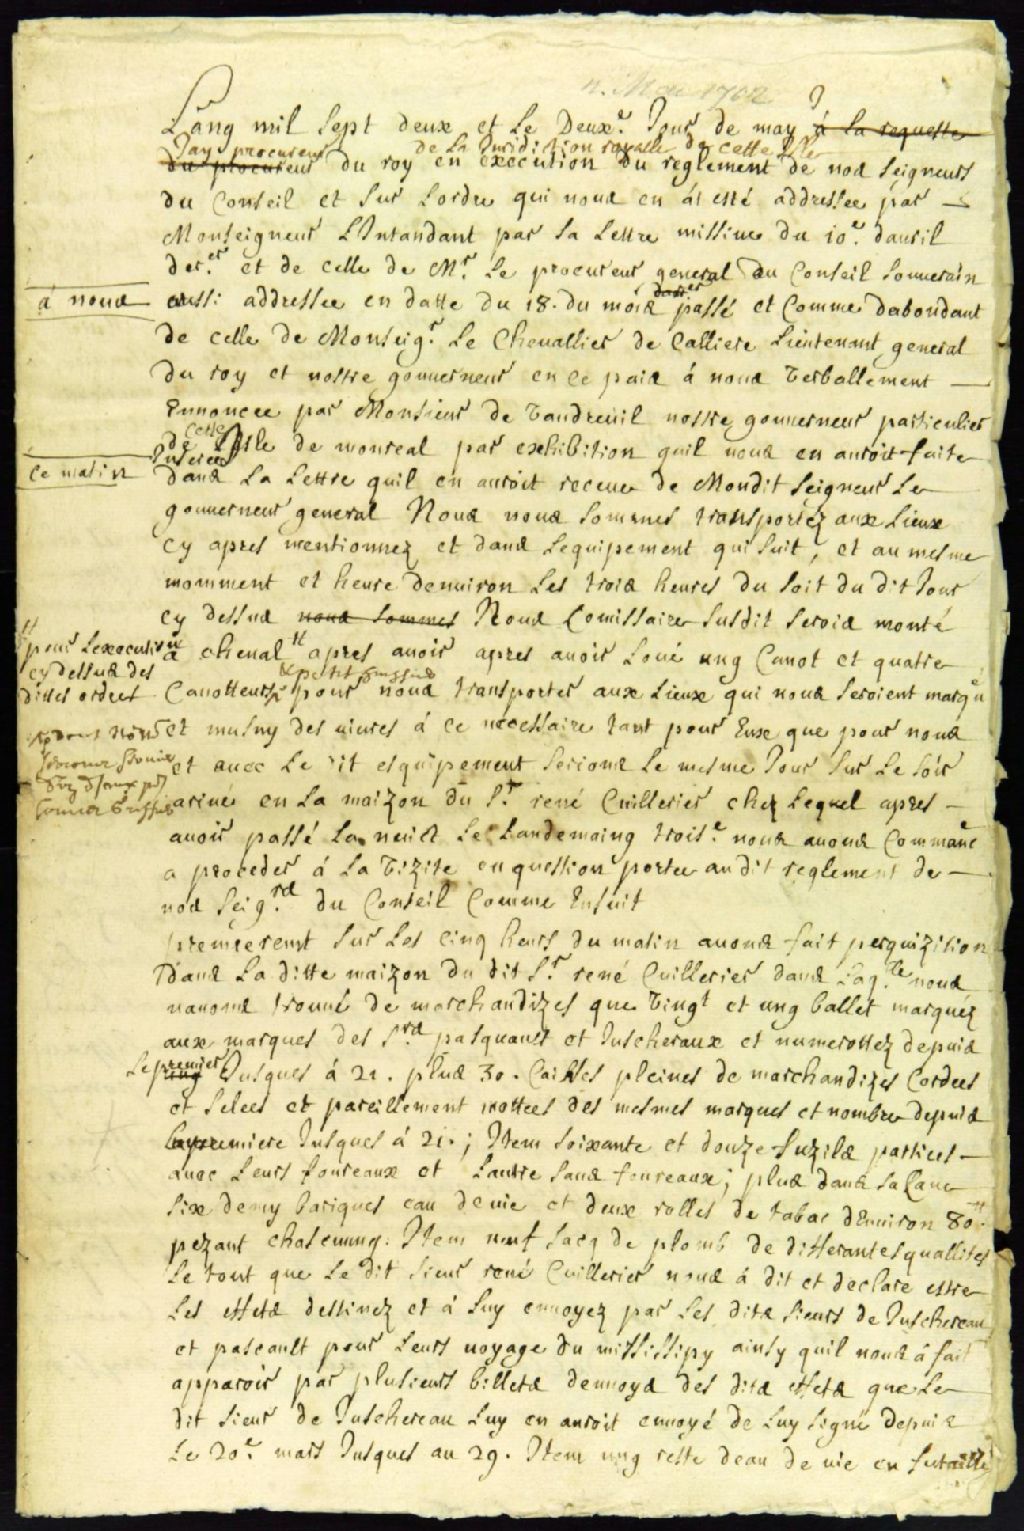 2. May 1702
L'ang mil sept deux et le deuxe. jour de may à la requeste
Jay procureur de la Juridition royalle de cette ville
du procureur du roy en execution du reglement de nos seigneurs
du Conseil et sur lordre qui nous en at esté addressee par
Monseigneur L'Intandant par sa lettre missiue du 10e. dauril
der.er et de celle de Mr. le procureur general du Conseil souuerain
à nous
aussi addressee en datte du 18. du mois passé et Comme dabondant
de celle de Monseigr. le Cheuallier de Calliere Lieutenant general
du roy et nostre gouuerneur en ce pais à nous verballement
Ennoncee par Monsieur de Vaudreuil nostre gouuerneur particulier
cette
de Isle de monreal par exhibition quil nous en auroit faite
ce matin
dans La Lettre quil en auroit receue de Mondit seigneur Le
gouuerneur general Nous nous sommes transportez aux Lieux
cy apres mentionnez et dans lequipement qui suit, et au mesme
momment et heure denuiron Les trois heures du soir du dit Jour
cy dessus nous sommes Nous Comissaire susdit serois monté
pour Lexecution
cy dessus des
dittes ordres
à cheual apres auoir apres auoir Loué ung Canot et quatre
& petit
Canotteurs pour nous transporter aux Lieux qui nous seroient marqu
et muny des viures à ce necessaire tant pour Eux que pour nous
et auec Le dit esquipement serions Le mesme Jour sur Le soir
ariué en La maizon du Sr. rené Cuillerier chez Lequel apres
auoir passé La nuict Le Landemaing troise. nous auons Commanc
a proceder à La vizite en question portee audit reglement de
nos seigrs. du Conseil Comme Ensuit
premierem't sur Les cinq heurs du matin auons fait perquizition
dans La ditte maizon du dit Sr. rené Cuillerier dans Laqlle nous
nauons trouué de marchandizes que vingt et ung ballet marquéz
aux marques des Srs. pasquault et Juchereaux et numerottez depuis
Le premier Jusques à 21. plus 30. Caisses pleines de marchandizes Cordees
et selees et pareillement nottees des mesmes marques et nombre depuis
La premiere Jusques à 21.; Item soixante et douze fuzils parties
auec Leurs foureaux et Lautre sans foureaux; plus dans sa Caue
six demy bariques eau de uie et deux rolles de tabac dEnuiron 80
pezant chascuung. Item neuf sacq de plomb de differantes quallites
Le tout que Le dit sieur rené Cuillerier nous à dit et declaré estre
Les effets destinez et à Luy enuoyez par Les dits sieurs de Juchereau
et pascault pour Leurs uoyage du missisipy ainsy quil nous à fait
apparoir par plusieurs billets denuoys des dits effets que Le
dit sieur de Juchereau Luy en auroit enuoyé de Luy signé depuis
Le 20e. mars Jusques au 29. Item ung reste deau de uie en futaille